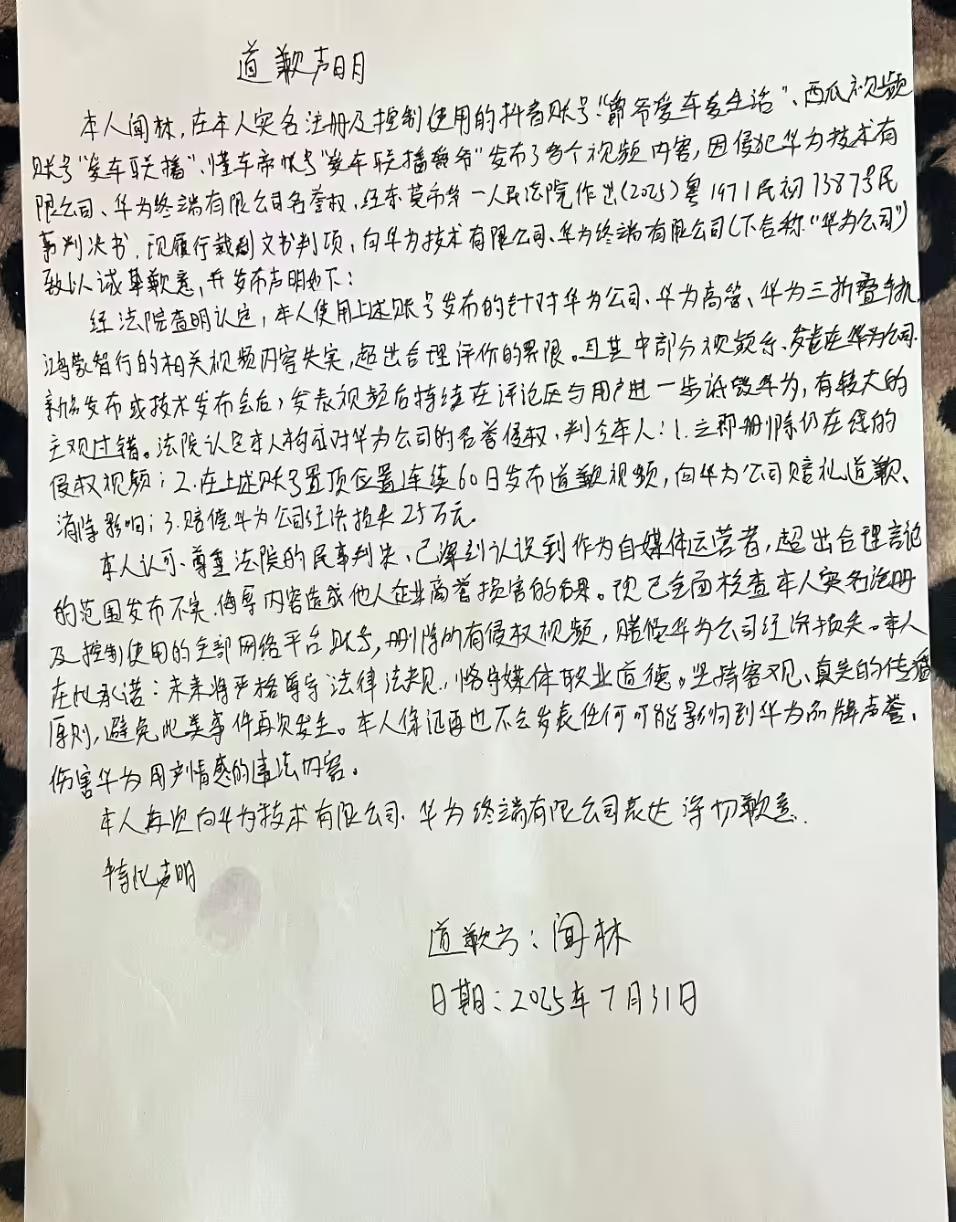 道歉声明
本人闻林,在本人实名注册及控制使用的抖音账号:“爵爷爱车爱生活”、西瓜视频
账号“爱车联播”、懂车帝帐号“爱车联播爵爷”发布了多个视频内容,因侵犯华为技术有
限公司、华为终端有限公司名誉权,经东莞市第一人民法院作出(2025)粤1971民初13873号民
事判决书,现履行裁判文书判项,向华为技术有限公司、华为终端有限公司(下合称“华为公司”)
致以诚挚歉意,并发布声明如下:
经法院查明认定,本人使用上述账号发布的针对华为公司、华为高管、华为三折叠手机、
鸿蒙智行的相关视频内容失实,超出合理评价的界限。且其中部分视频系发表在华为公司
新品发布或技术发布会后,发表视频后持续在评论区与用户进一步诋毁华为,有较大的
主观过错。法院认定本人构成对华为公司的名誉侵权,判令本人:1.立即删除仍在线的
侵权视频;2.在上述账号置顶位置连续60日发布道歉视频,向华为公司赔礼道歉、
消除影响;3.赔偿华为公司经济损失25万元。
本人认可、尊重法院的民事判决,已深刻认识到作为自媒体运营者,超出合理言论
的范围发布不实、侮辱内容造成他人企业商誉损害的后果。现已全面核查本人实名注册
及控制使用的全部网络平台账号,删除所有侵权视频,赔偿华为公司经济损失。本人
在此承诺:未来将严格遵守法律法规,恪守媒体职业道德。坚持客观、真实的传播
原则,避免此类事件再次发生。本人保证再也不会发表任何可能影响到华为品牌声誉、
伤害华为用户情感的违法内容。
本人再次向华为技术有限公司、华为终端有限公司表达深切歉意.
特此声明
道歉方:闻林
日期:2025年7月31日